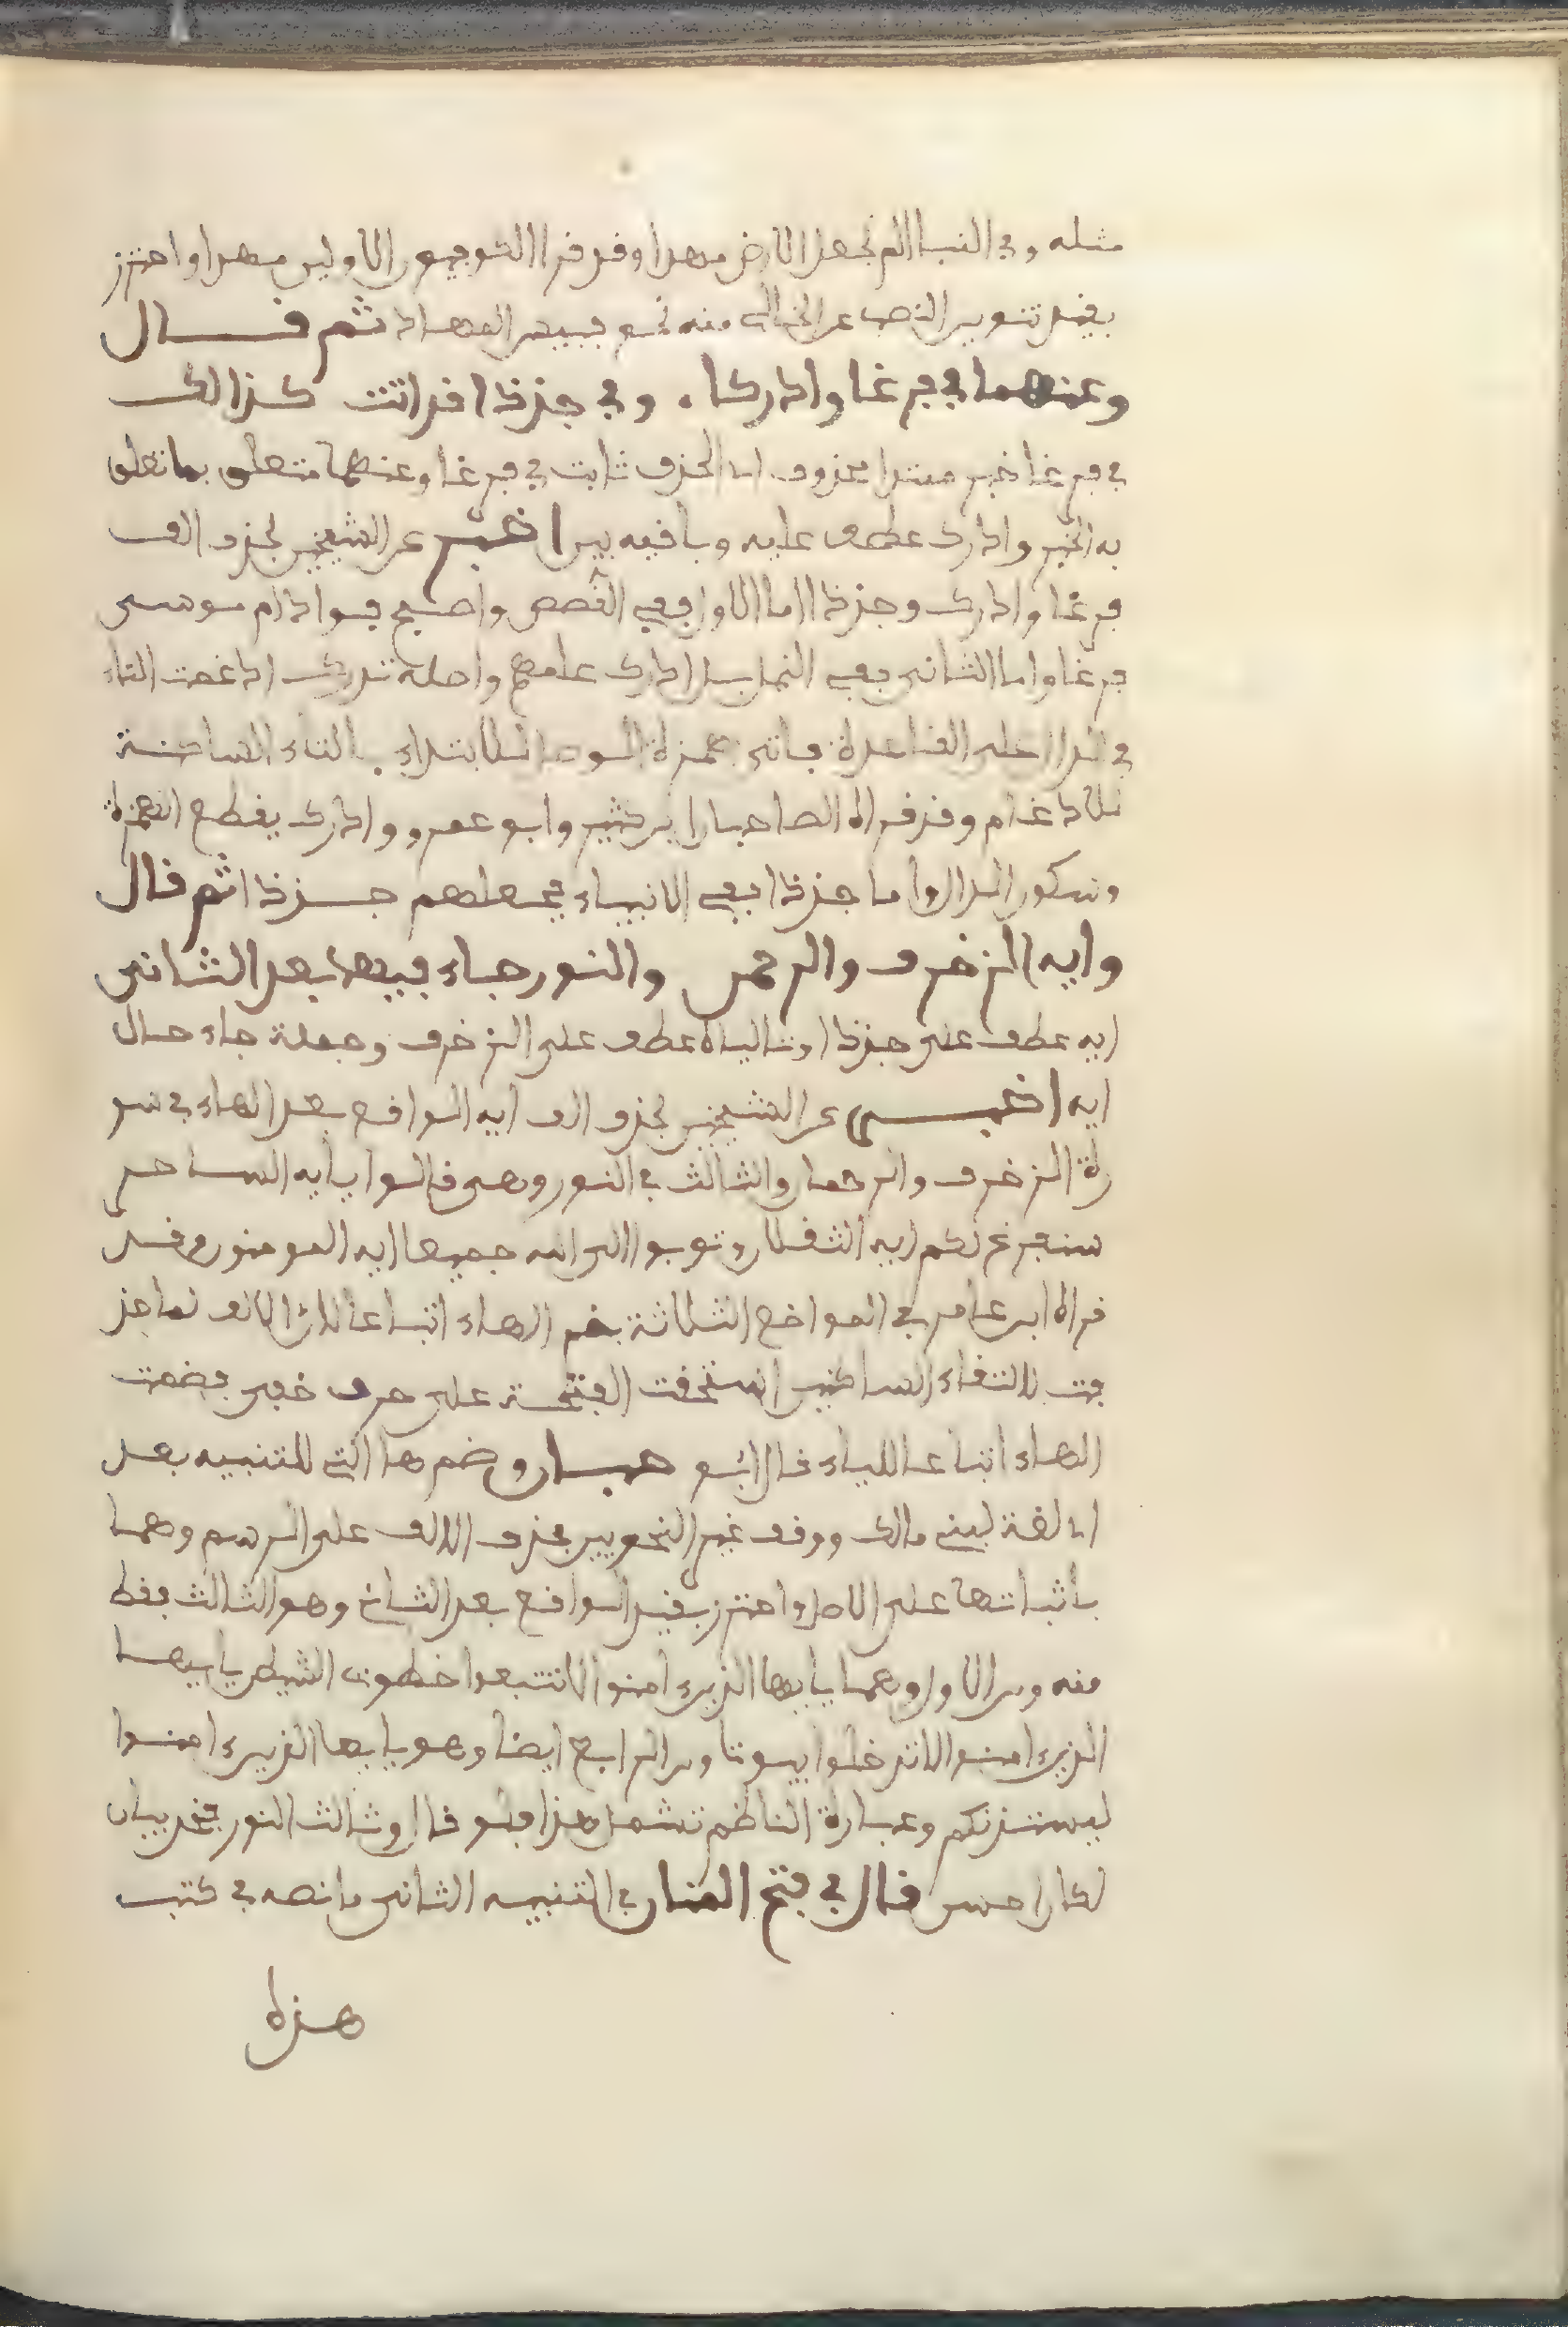 مثله وفي النبإ الم نجعل الارض مهدا وقد قرا الكوفيون الاولين مهدا واحترز
بقيد تنوين النصب عن الخالي منه نحو فبيس المهاد ثم قال
وعنهما في فرغا وادركا . وفي جذذا قد اتت كذالك
في فرغا خبر مبتدا محذوف اي الحذف ثابت في فرغا وعنهما متعلق بما تعلق
به الخبر وادرك عطف عليه وباقيه بين اخبر عن الشيخين بحذف الف
فرغا وادرك وجذذا اما الاول ففي القصص واصبح فواد ام موسى
فرغا واما الثاني ففي النمل بل ادرك علمهم واصله تدرك ادغمت التاء
في الدال على القاعدة فاتي بهمزة الوصل للابتداء بالتاء الساكنة
للادغام وقد قراه الصاحبان ابن كثير وابو عمرو وادرك بقطع الهمزة
وسكون الدال واما جذذا ففي الانبياء فجعلهم جذذا ثم قال
وايه الزخرف والرحمن والنور جاء فيها بعد الثاني
ايه عطف على جذذا وتالياه عطف على الزخرف وجملة جاء حال
ايه اخبر عن الشيخين بحذف الف ايه الواقع بعد الهاء في سو
رة الزخرف والرحمان والثالث في النور وهي قالوا يايه الساحر
سنفرغ لكم ايه الثقلان وتوبوا الى الله جميعا ايه المومنون وقد
قراه ابن عامر في المواضع الثلاثة بضم الهاء اتباعا لان الالف لما حذ
فت لالتقاء الساكنين استخفت الفتحة على حرف خفي فضمت
الهاء اتباعا للياء قال ابو حيان وضم ها التي للتنبيه بعد
اي لغة لبني مالك ووقف غير النحويين بحذف الالف على الرسم وهما
باثباتها على الاصل واحترز بقيد الواقع بعد الثاني وهو الثالث فقط
منه ومن الاول وهما يايها الذين امنوا لا تتبعوا خطوت الشيطن يايها
الذين امنوا لا تدخلوا بيوتا ومن الرابع ايضا وهو يايها الذين امنوا
ليستذنكم وعبارة الناظم تشمل هذا فلو قال وثالث النور
لكان احسن قال في فتح المنان في التنبيه الثاني ما نصه في كتب
هذه